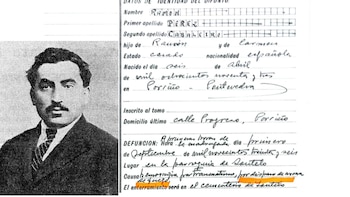 DATOS DE IDENTIDAD DEL DIFUNTO
Nombre Ramón
Primer apellido Pérez
Segundo apellido
hijo de Ramón y de Carmen
Estado casado nacionalidad española
Nacido el día seis de Abril
de mil ochocientos noventa y tres
en Porriño - Pontevedra
Inscrito al tomo
Domicilio última calle Progreso, Porriño
A primeras horas de
DEFUNCION: la madrugada día primero
de Septiembre de mil novecientos treinta y seis
Lugar en la parroquia de
Causa hemorragia traumatismo, por disparo de arma
de fuego
El enterramiento será en el cementerio de